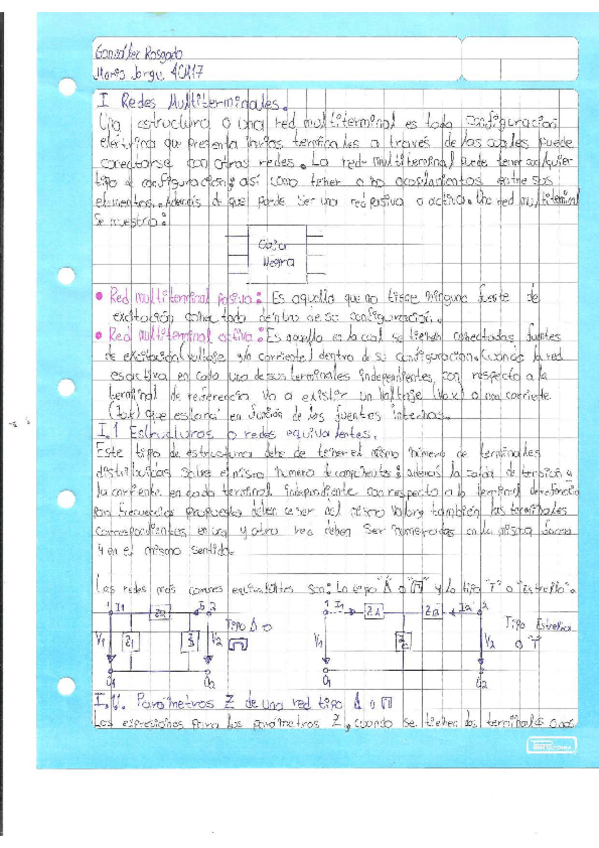 González Rosgado
Mario Jorge. 4CM17
I Redes Multiterminales.
Una estructura o una red multiterminal es toda configuración
eléctrica que presenta varios terminales a través de los cuales puede
conectarse con otras redes. La red multiterminal puede tener cualquier
tipo d configuración; así como tener o no acoplamientos entre sus
elementos. Además de que puede ser una red pasiva o activa. Una red multiterminal
se muestra:
Caja
Negra
• Red multiterminal pasiva: Es aquella que no tiene ninguna fuente de
excitación conectada dentro de su configuración.
• Red multiterminal activa: Es aquella en la cual se tienen conectadas fuentes
de excitación (voltaje y/o corriente) dentro de su configuración. Cuando la red
es activa en cada uno de sus terminales independientes, con respecto a la
terminal de referencia va a existir un voltaje (Vox) o una corriente
(Iox) que estará en función de las fuentes internas.
I.1 Estructuras o redes equivalentes.
Este tipo de estructuras debe de tener el mismo número de terminales
distribuidas sobre el mismo número de componentes; además la caída de tensión y
la corriente en cada terminal independiente con respecto a la terminal de referencia
frecuencia propuesta deben ser del mismo valor; también las terminales
correspondientes en una y otra red deben ser numeradas en la misma forma
y en el mismo sentido.
Las redes más comunes equivalentes son: La tipo "Δ o Π" y la tipo "T" o "Estrella".
1 I1 ZB I2 2
V1 Z1 Z3 V2
Tipo Δ o
Π
O1 O2
1 I1 ZA ZB I2 2
V1 ZC V2
Tipo Estrella
o "T"
O1 O2
Parámetros Z de una red tipo Δ o Π
Las expresiones para los parámetros Z, cuando se tienen las terminales